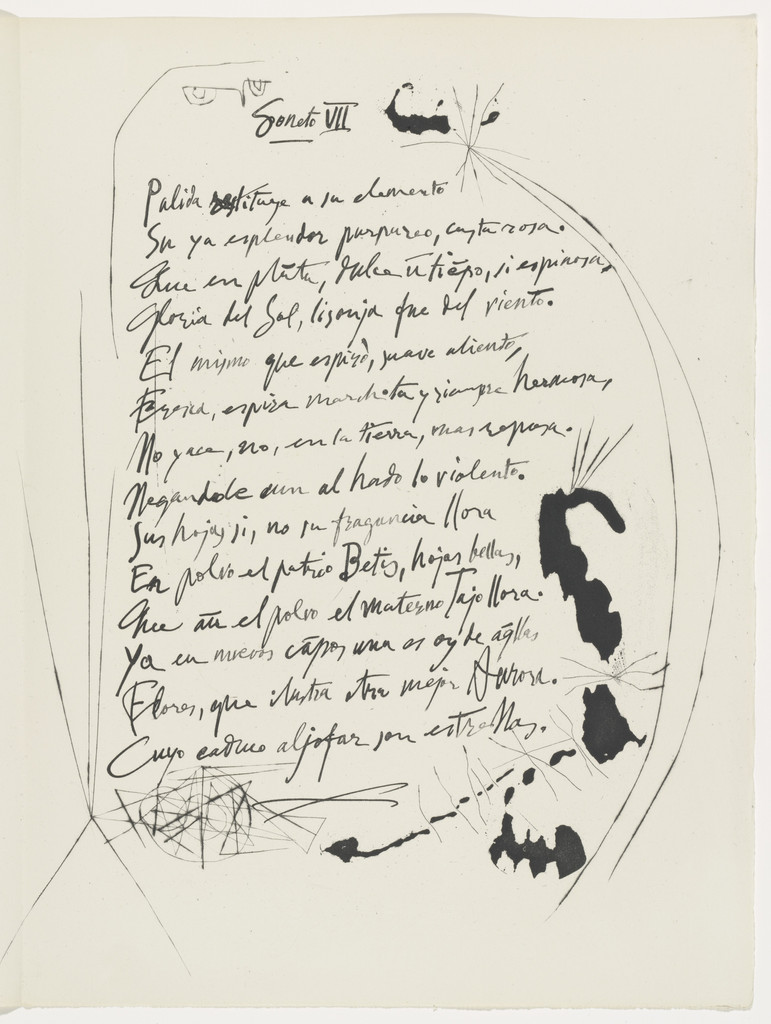 Soneto VII
Palida restituye a su elemento
Su ya esplendor purpureo, casta rosa.
Que en plãta, dulce ũ tiẽpo, si espinosa,
Gloria del Sol, lisonja fue del viento.
El mismo que espiró, suave aliento,
Fresca, espira marchita y siempre hermosa,
No yace, no, en la tierra, mas reposa.
Negandole aun al hado lo violento.
Sus hojas si, no su fragancia llora
En polvo el patrio Betis, hojas bellas,
Que aũ el polvo el materno Tajo llora.
Ya en nuevos cãpos una es oy de aq̃llas
Flores, que ilustra otra mejor Aurora.
Cuyo caduco aljofar son estrellas.